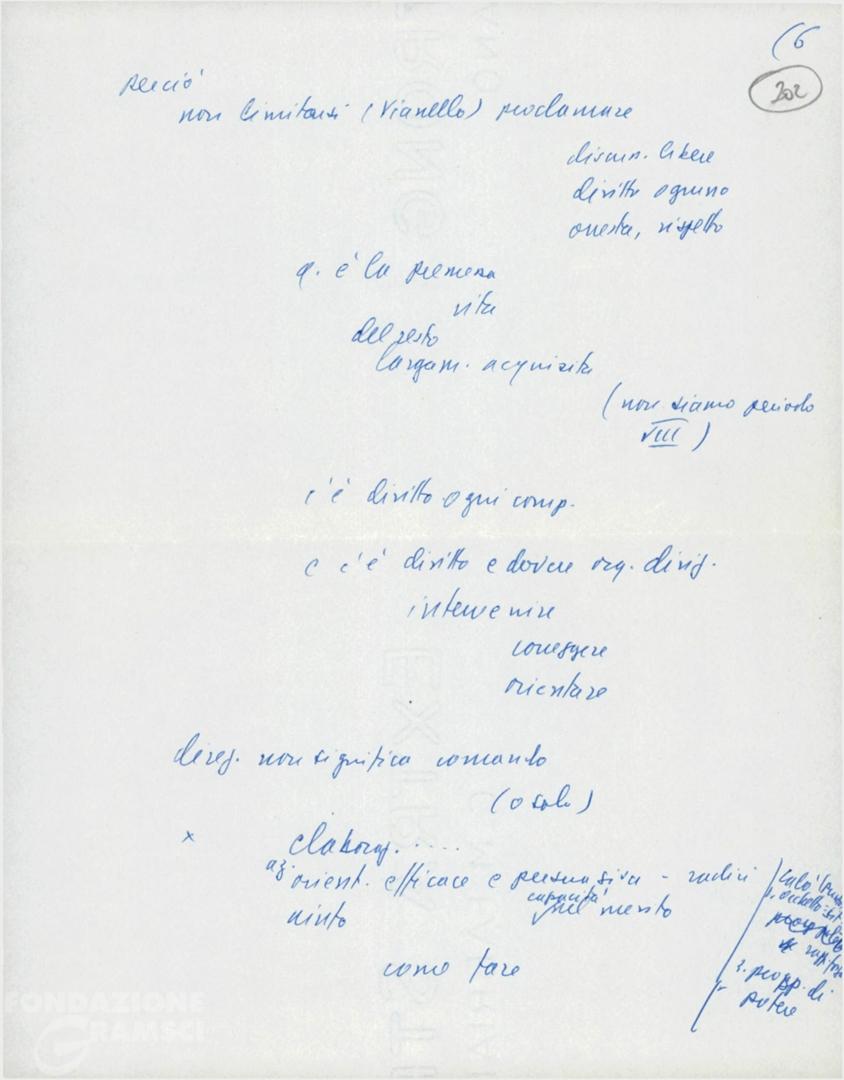 (6
202
perciò
non limitarsi (Vianello) proclamare
discuss. libere
diritto ognuno
onestà, rispetto
q. è la premessa
vita
del resto
largam. acquisita
(non siamo periodo
VIII)
c'è diritto ogni comp.
e c'è diritto e dovere org. dirig.
intervenire
correggere
orientare
direz. non significa comando
(o solo)
x elaboraz. .....
az. orient. efficace e persuasiva - radici
capacità
nel merito
come fare
2. propp. di
potere
FONDAZIONE
GRAMSCI